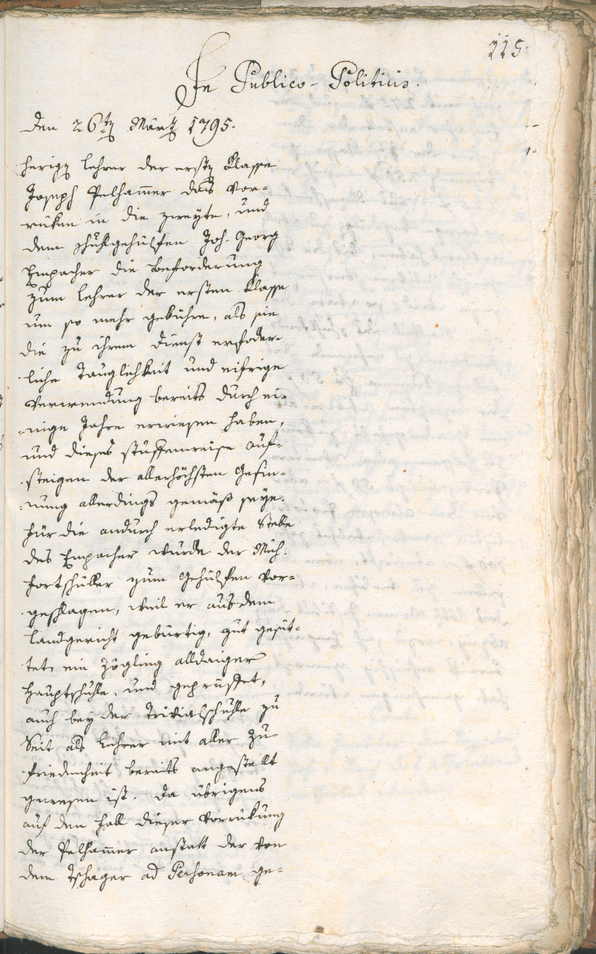 115.
In Publico-Politicis.
Den 26ten März 1795.
herige Lehrer der ersten Klasse
Joseph Pelhamer das Vor-
rüken in die zweyte, und
dem Schuhlgehülfen Joh. Georg
Empacher die Beförderung
zum Lehrer der ersten Klasse
um so mehr gebühre, als sie
die zu ihrem Dienst erfoder-
liche Tauglichkeit und eifrige
Verwendung bereits durch ei-
nige Jahre erwiesen haben,
und dieses stuffenweise Auf-
steigen der allerhöchsten Gesin-
nung allerdings gemäß seye.
Für die andurch erledigte Stelle
des Empacher wurde der
zum Gehülfen vor-
geschlagen, weil er aus dem
Landgericht gebürtig, gut gesit-
tet, ein Zögling alldasiger
Hauptschuhle, und geprüfet,
auch bey der Trivialschuhle zu
als Lehrer mit aller Zu-
friedenheit bereits angestellt
gewesen ist. Da übrigens
auf den Fall dieser Vorrükung
der Pelhamer anstatt der von
dem Tschager ad Personam ge-